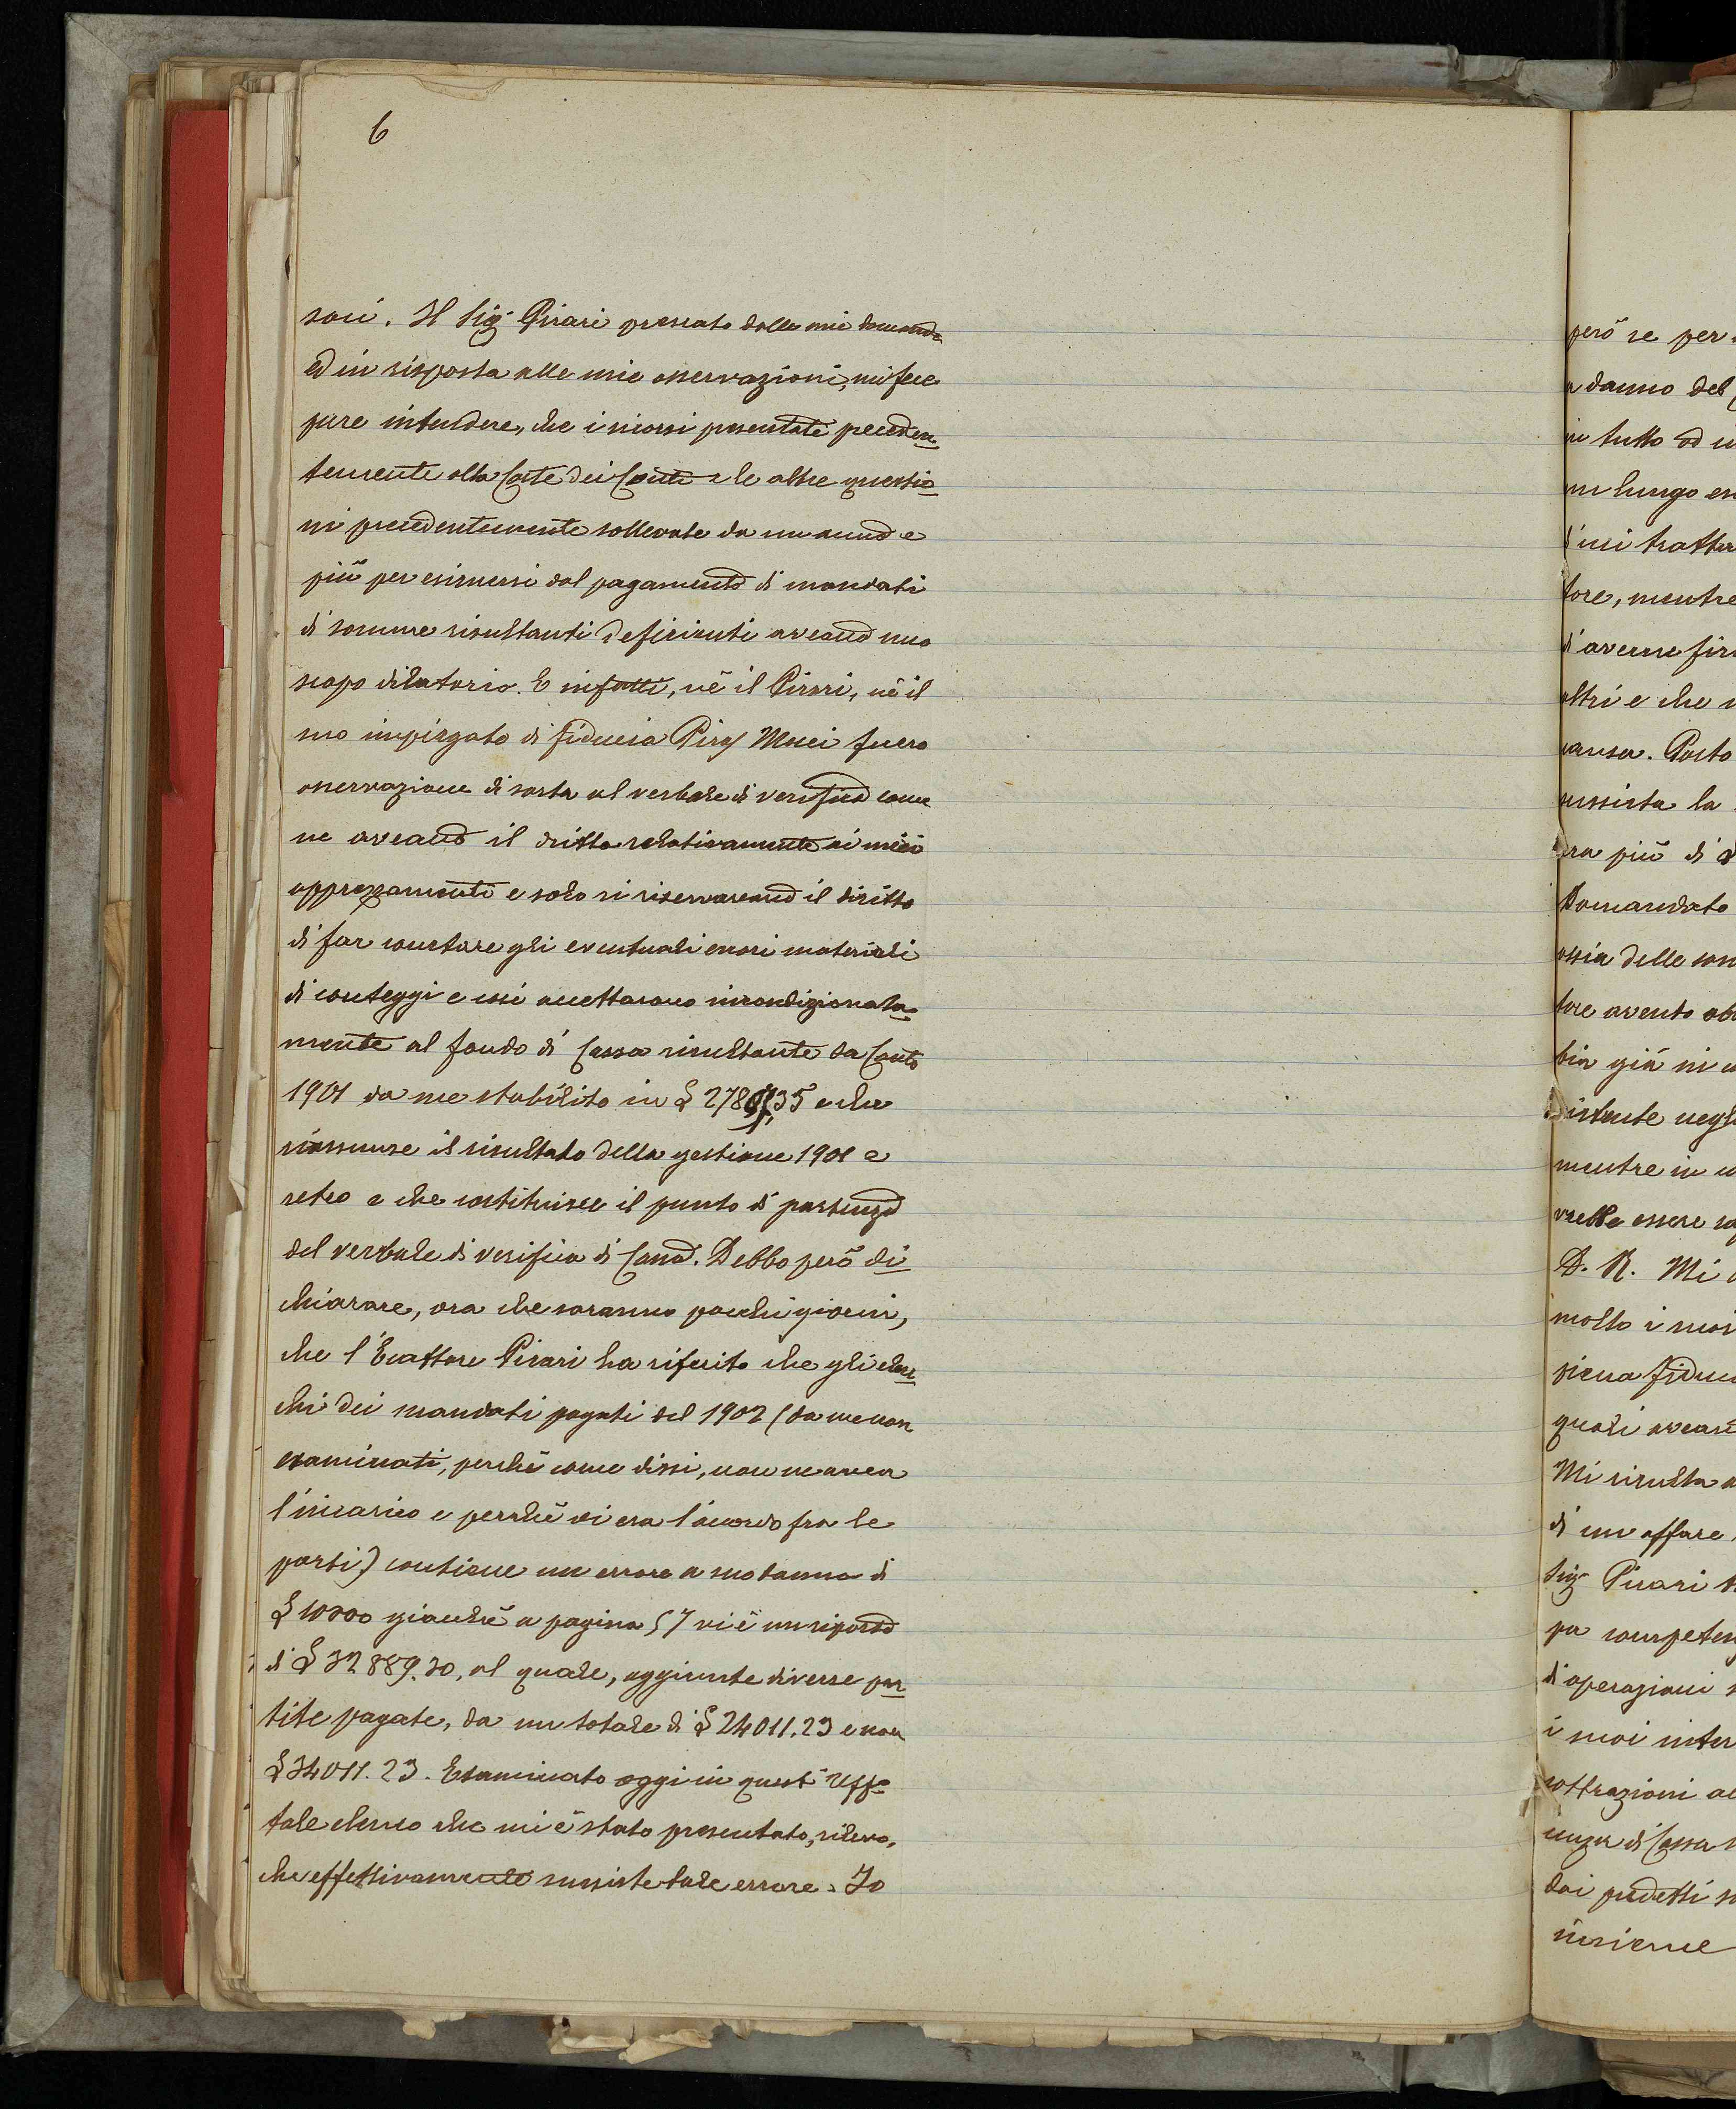 6
soci. Il Sig. Pirari pressato dalle mie domande
ed in risposta alle mie osservazioni, mi fece
pure intendere, che i ricorsi presentati preceden
temente alla Corte dei Conti e le altre questio
ni precedentemente sollevate da un anno e
più per esimersi dal pagamento di mandati
di somme risultanti deficienti aveano uno
scopo dilatorio. E infatti, nè il Pirari, nè il
suo impiegato di fiducia Mosci fecero
osservazione di sorta al verbale di verifica come
ne aveano il dritto relativamente ai miei
apprezzamenti e solo si riservarono il diritto
di far constare gli eventuali errori materiali
di conteggi e così accettarono incondizionata
mente al fondo di Cassa risultante da Conto
1901 da me stabilito in £ e che
riassume il risultato della gestione 1901 e
retro e che costituisce il punto di partenza
del verbale di verifica di Cassa. Debbo però di
chiarare, ora che saranno pochi giorni,
che l'Esattore Pirari ha riferito che gli elen
chi dei mandati pagati del 1902 (da me non
esaminati, perchè come dissi, non ne avea
l'incarico e perchè vi era l'accordo fra le
parti) contiene un errore a suo danno di
£ 10000 giacchè a pagina 57 vi è un riporto
di £ 32889.30, al quale, aggiunte diverse par
tite pagate, da un totale di £ 24011.23 e non
£ 34011.23. Esaminato oggi in quest'Uffo
tale elenco che mi è stato presentato, rilevo,
che effettivamente sussiste tale errore. Io
però se per
a danno del
in tutto ed
un lungo
tore, mentre
d'averne
altri e che
causa. Posto
sussista la
ra più di
Domandato
ossia delle
tore avento
bia già in
mentre in
vrebbe essere
D. R. Mi
molto i suoi
piena
quali
Mi risulta
di un affare
Sig. Pirari
di operazioni
i suoi
sottrazioni
di Cassa
dai predetti
insieme